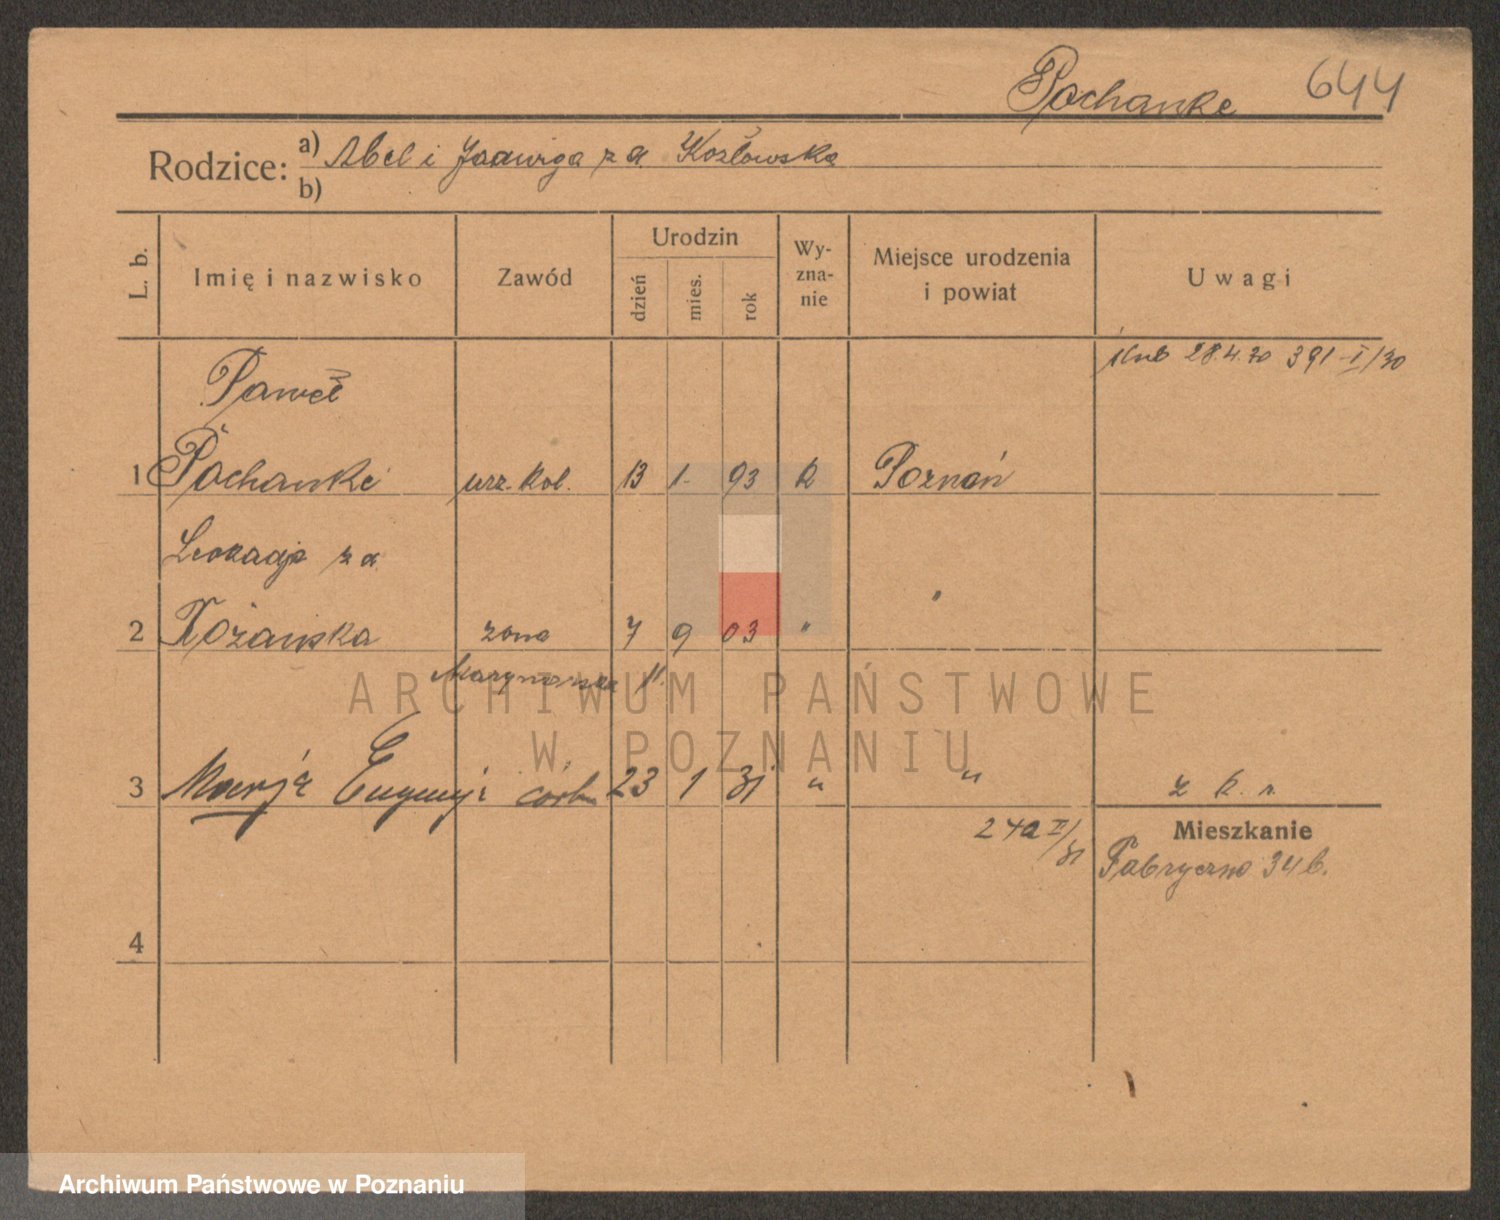 Pochanke 644
Rodzice: a) Abel i Jadwiga z d. Kozłowska
b)
L. b. Imię i nazwisko Zawód Urodzin dzień mies. rok Wyznanie Miejsce urodzenia i powiat Uwagi
ślub 28.4.30 391-I/30
Paweł
1 Pochanke urz. kol. 13 1. 93 k Poznań
Leokadja z d.
2 Kożańska żona 7 9 03 " "
Marynarska 11.
3 Marja Eugenja córka 23 1 31 " " z k. r.
242 II/31
Mieszkanie
Fabryczna 34b.
4
ARCHIWUM PAŃSTWOWE
W POZNANIU
Archiwum Państwowe w Poznaniu